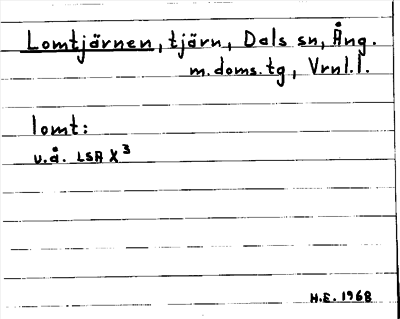 Lomtjärnen, tjärn, Dals sn, Ång.
m.doms.tg, Vrnl.l.
lomt:
u.å. LSA X³
H.E. 1968